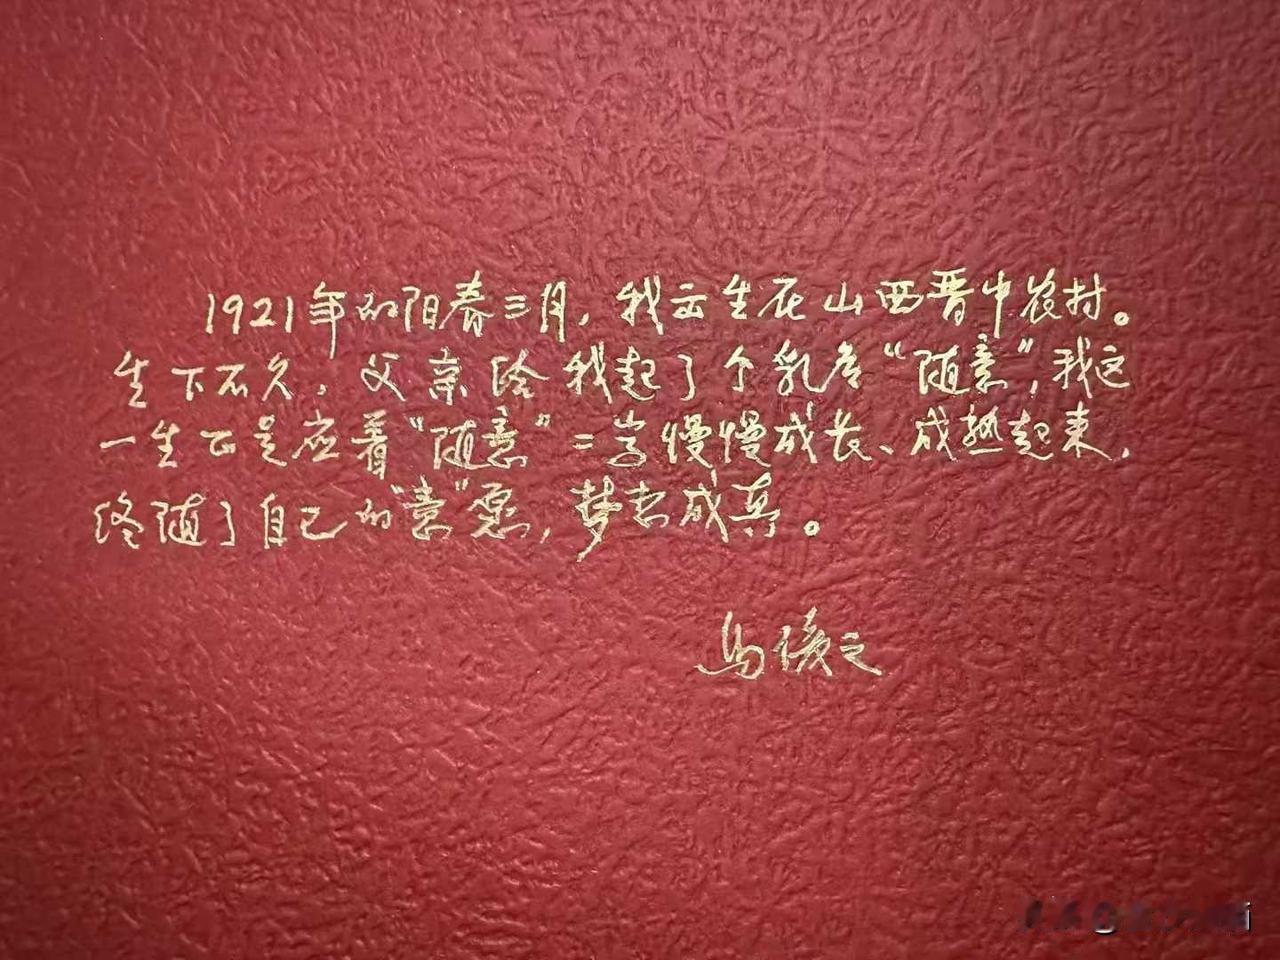 1921年的阳春三月,我出生在山西晋中农村。
生下不久,父亲给我起了个乳名“随意”,我这
一生正是应着“随意”二字慢慢成长、成熟起来,
终随了自己的“意”愿,梦想成真。
马